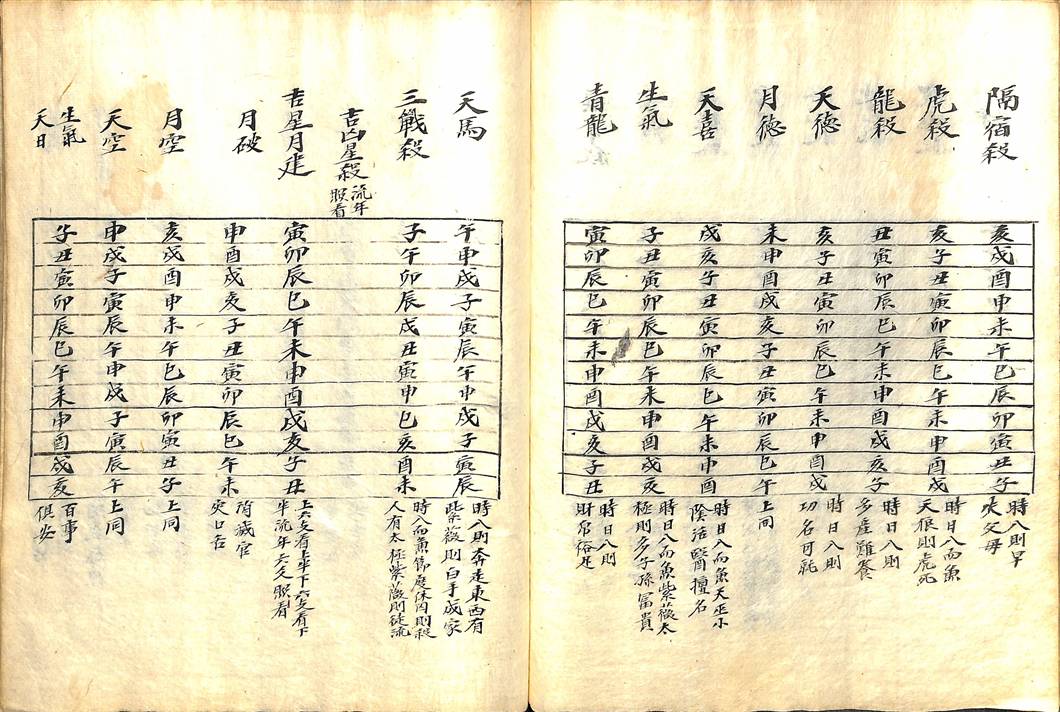 隔宿殺
亥戌酉申未午巳辰卯寅丑子
時八則早
失父母
虎殺
亥子丑寅卯辰巳午未申酉戌
時日八而無
天狼則虎死
龍殺
丑寅卯辰巳午未申酉戌亥子
時日八則
多產難養
天德
亥子丑寅卯辰巳午未申酉戌
時日八則
功名可託
月德
未申酉戌亥子丑寅卯辰巳午
上同
天喜
戌亥子丑寅卯辰巳午未申酉
時日八而無天巫小
陰活醫擅名
生氣
子丑寅卯辰巳午未申酉戌亥
時日八而無紫薇太
極則多子孫富貴
青龍
寅卯辰巳午未申酉戌亥子丑
時日八則
財帛裕足
天馬
午申戌子寅辰午申戌子寅辰
時八則奔走東西有
紫薇則白手成家
三戰殺
子午卯辰戌丑寅申巳亥酉未
時八而無休囚則殺
人有太極紫薇則從流
吉凶星殺
流年
照看
吉星月建
寅卯辰巳午未申酉戌亥子丑
上六支看上半下六支看下
半流年大文照看
月破
申酉戌亥子丑寅卯辰巳午未
陷藏官
災口舌
月空
亥戌酉申未午巳辰卯寅丑子
上同
天空
申戌子寅辰午申戌子寅辰午
上同
生氣
天日
子丑寅卯辰巳午未申酉戌亥
百事
俱必